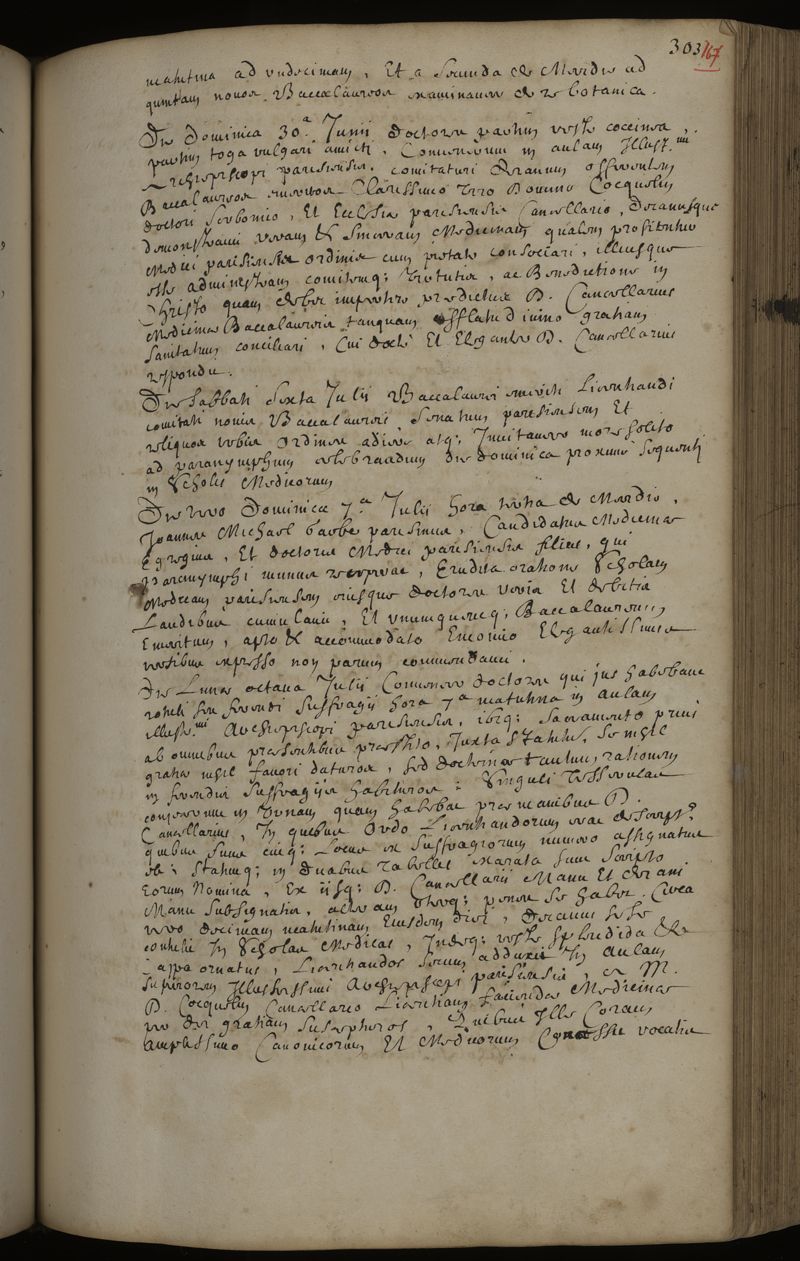 303 167
matutina ad undecimam, Et a secunda de Meridie ad
quintam novos Baccalaureos examinavere de re botanica.
Die Dominica 30.a Junii Doctores partim veste coccinea,
partim toga vulgari amicti, Convenerunt in aulam Illust.mi
Archiepiscopi parisiensis. comitaturi Decanum offerentem
Baccalaureos emeritos Clarissimo Viro Domino Cocquelin
doctori sorbonico, Et Ecclesiae parisiensis Cancellario, Decanusque
veram Et sinceram Medicinam qualem profitentur
Medici parisienses ordinis cum pietate consociari, illiusque
esse administram comitemq; virtutis, ac Benedictione in
Christo quam debet predictus D. Cancellarius
Medicinae Baccalaureis tanquam afflatu divino gratiam
sanitatum conciliari, Cui docte Et Eleganter D. Cancellarius
respondit.
Die Sabbati sexta Julii Baccalaurei emeriti Licentiandi
comitati novis Baccalaureis, senatum parisiensem Et
reliquos urbis ordines adiere atq; Invitavere more solito
ad paranymphum celebrandum die dominica proxime sequenti
in scholis Medicorum
Die vero Dominica 7.a Julii hora tertia de Meridie,
Joannes Michael parisinus, Candidatus Medicinae
Egregius, Et doctoris Medici parisiensis filius, qui
Paranymphi munus receperat, Erudita oratione scholam
Medicam parisiensem eiusque doctores veris Et debitis
Laudibus cumulavit, Et unumquemq; Baccalaureum
Emeritum, apto Et accommodato Encomio Elegantissimis
versibus expresso non parum commendavit.
Die Lunae octava Julii Convenere doctores qui jus habebant
ferendi suffragii hora 7.a matutina in aulam
illust.mi Archiepiscopi parisiensis, ibiq; sacramento prius
ab omnibus presentibus prestito, Juxta statuta, se nihil
gratiae nihil favori daturos, sed doctrinae tantum, rationem
in ferendis suffragiis habituros: singuli tesserulas
in Urnam quam habebat prae manibus D.
Cancellarius, In quibus Ordo Licentiandorum erat descriptus
quibus suus cuiq; Locus ex suffragiorum numero assignatus
Est; statimq; in duabus tabellis exarata sunt scripto
Eorum Nomina, Ex iisq; D. Cancellarii Manu Et decani
Manu subsignatis, alteram uterq; penes se habet. Circa
vero decimam matutinam Eiusdem diei, Decanus sese
contulit In scholas Medicas, Indeq; veste splendida Et
Cappa ornatus, Licentiandos secum adduxit In aulam
superiorem Illustrissimi Archiepiscopi parisiensis, a M.
D. Cocquelin Cancellario Licentiam faciendae Medicinae
pro dei gratiam suscepturos, Quibus Ille Coram
amplissimo Canonicorum Et Medicorum Consessu vocatis